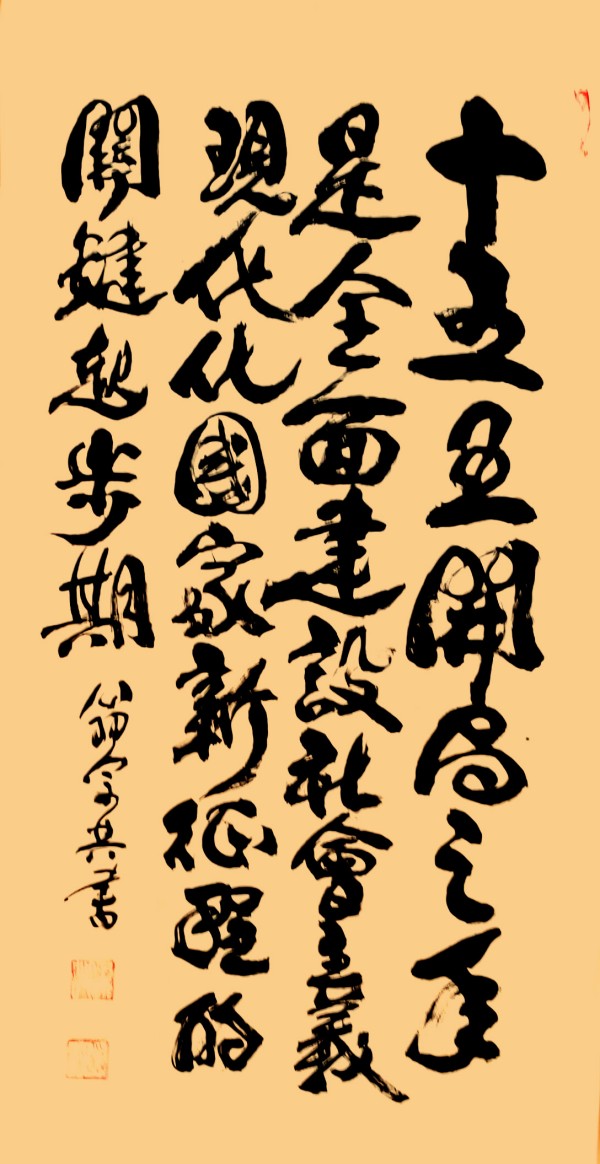 十五五開局之年
是全面建設社會主義
現代化國家新征程的
關鍵起步期
翁共書